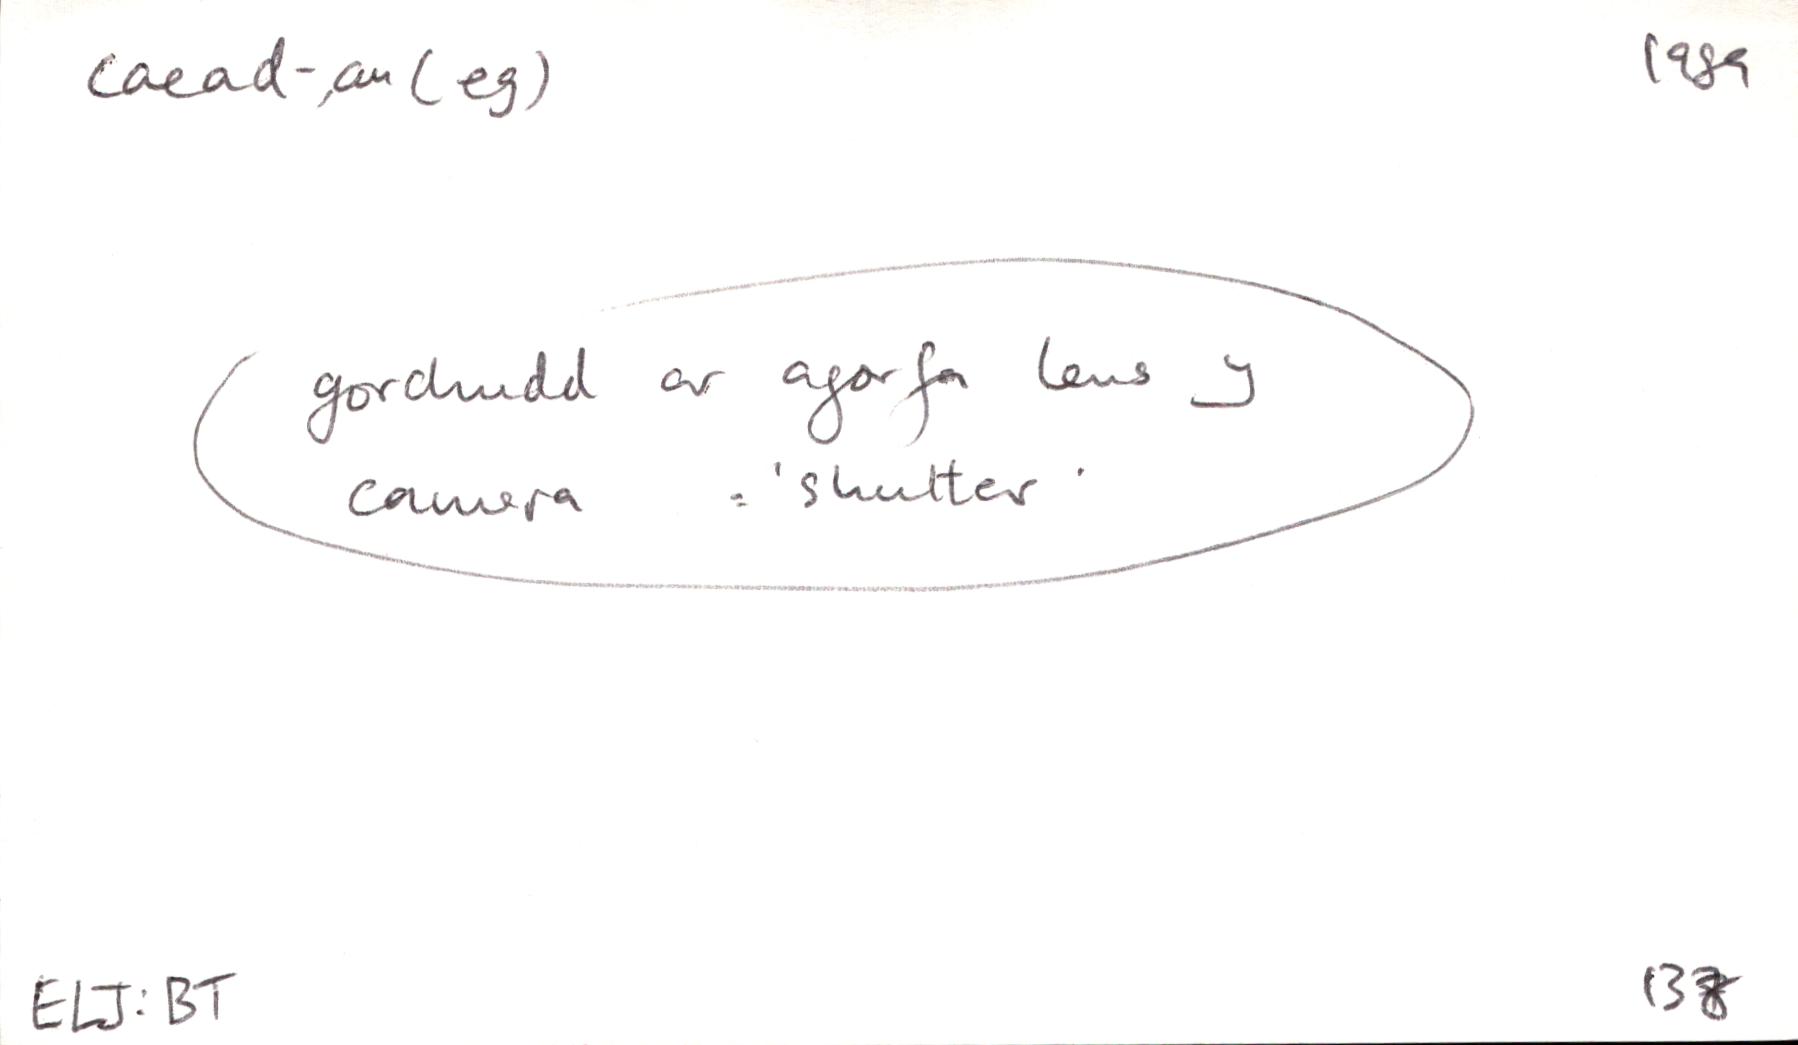 caead-,au (eg)
1989
gorchudd ar agorfa lens y
camera = 'shutter'
ELJ: BT